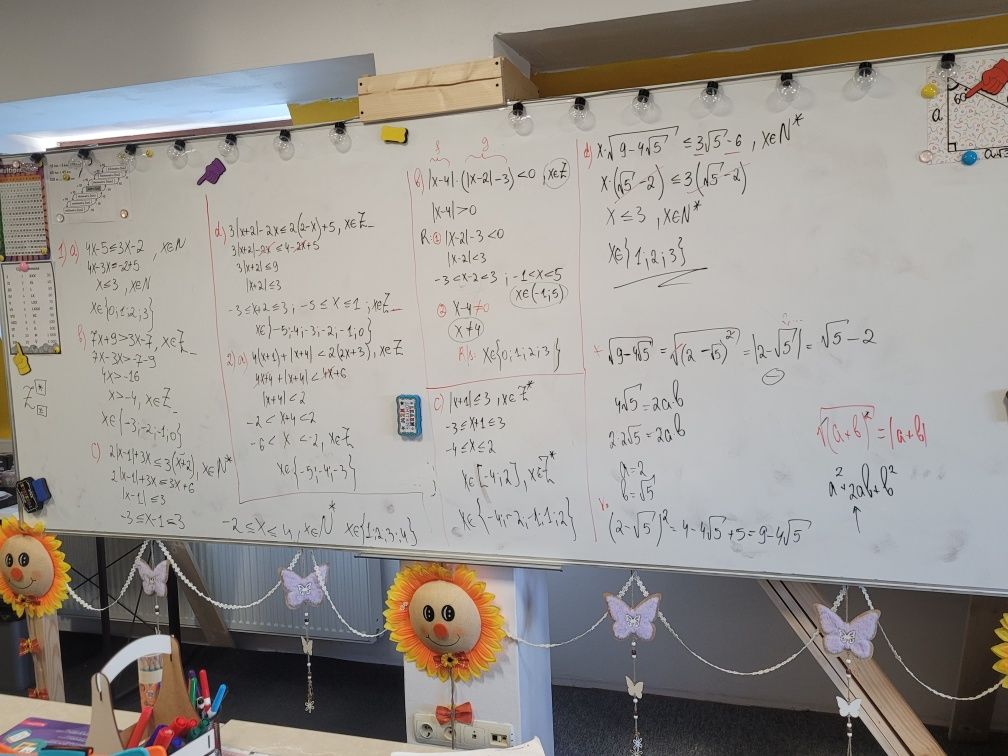 1) a) 4x-5≤3x-2 , x∈N
4x-3x=-2+5
x≤3 , x∈N
x∈{0;1;2;3}
b) 7x+9>3x-7, x∈Z_
7x-3x>-7-9
4x>-16
x>-4, x∈Z_
x∈{-3;-2;-1,0}
c) 2|x-1|+3x≤3(x+2), x∈N*
2|x-1|+3x≤3x+6
|x-1|≤3
-3≤x-1≤3
-2≤x≤4, x∈N* x∈{1;2;3;4}
d) 3|x+2|-2x≤2(2-x)+5, x∈Z_
3|x+2|-2x≤4-2x+5
3|x+2|≤9
|x+2|≤3
-3≤x+2≤3 ; -5≤x≤1 ; x∈Z_
x∈{-5;-4;-3;-2;-1,0}
2) a) 4(x+1)+|x+4|<2(2x+3), x∈Z
4x+4+|x+4|<4x+6
|x+4|<2
-2<x+4<2
-6<x<-2, x∈Z
x∈{-5;-4;-3}
f g
b) |x-4|·(|x-2|-3)<0 , x∈Z
|x-4|>0
R: ① |x-2|-3<0
|x-2|<3
-3<x-2<3 ; -1<x<5
x∈(-1;5)
② x-4≠0
x≠4
x∈{0;1;2;3}
c) |x+1|≤3 , x∈Z*
-3≤x+1≤3
-4≤x≤2
x∈[-4;2], x∈Z*
x∈{-4;-2;-1;1;2}
d) x·√9-4√5 ≤3√5-6 , x∈N*
x·(√5-2)≤3(√5-2)
x≤3 , x∈N*
x∈{1;2;3}
√9-4√5 = √(2-√5)² = |2-√5| = √5-2
4√5=2ab
2·2√5=2ab
a=2
b=√5
(2-√5)²=4-4√5+5=9-4√5
√(a+b)² = |a+b|
a²+2ab+b²
Z
a
60°